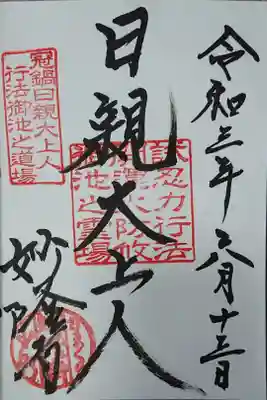 令和三年六月十三日
日親大上人
冠鍋日親大上人
行法御池之道場
試忍力行法
池之霊場
妙隆寺